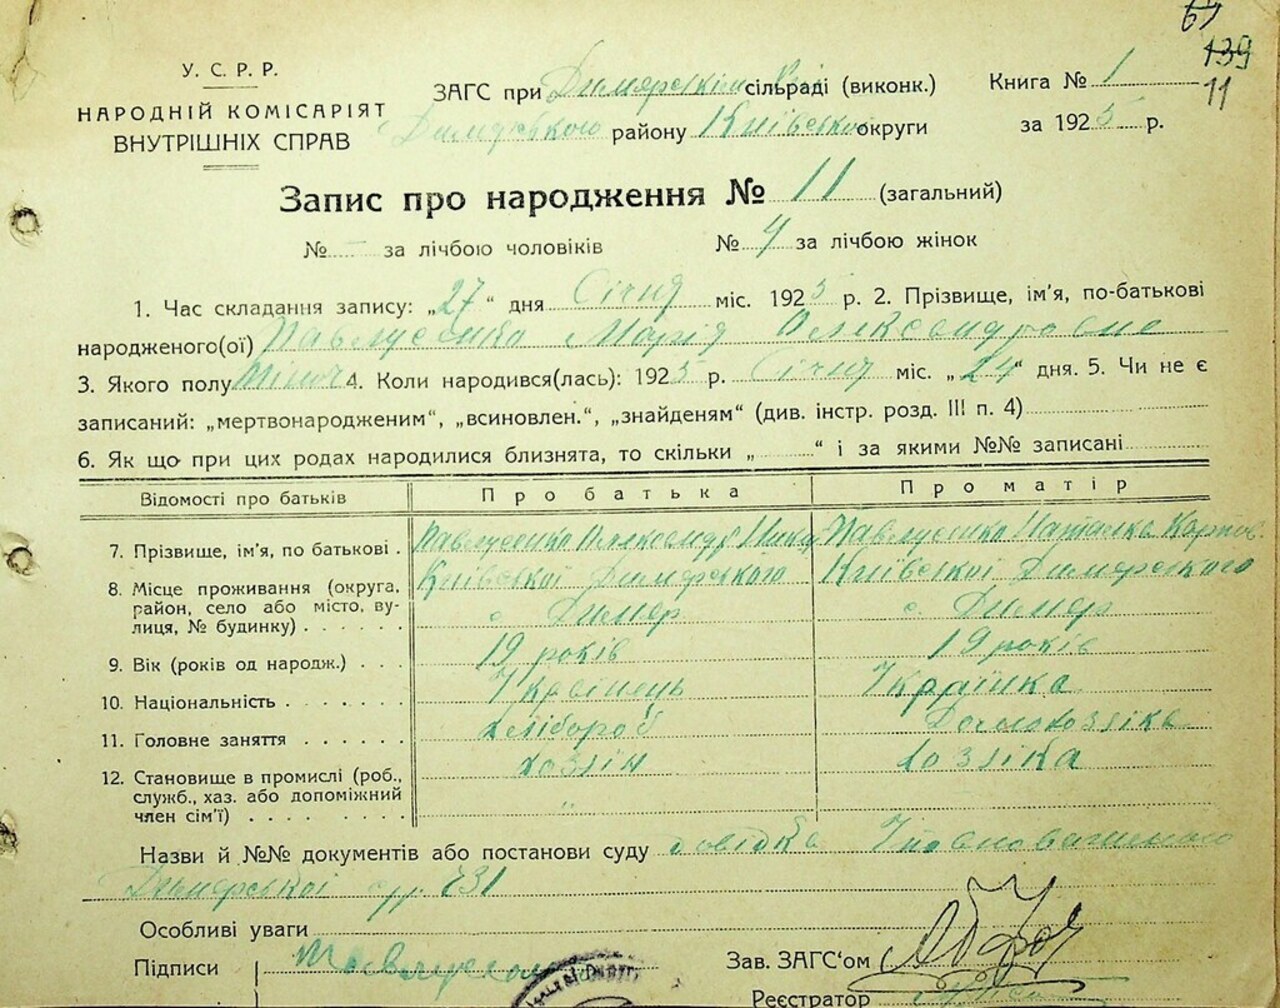 67
139
11
У. С. Р. Р.
НАРОДНІЙ КОМІСАРІЯТ
ВНУТРІШНІХ СПРАВ
ЗАГС при Димерській сільраді (виконк.)
Димерського району Київської округи
Книга № 1
за 1925 р.
Запис про народження № 11 (загальний)
№ — за лічбою чоловіків № 4 за лічбою жінок
1. Час складання запису: „27“ дня Січня міс. 1925 р. 2. Прізвище, ім'я, по-батькові
народженого(ої) Павлусенко Марія Олександровна
3. Якого полу Жіноч 4. Коли народився(лась): 1925 р. Січня міс. „24“ дня. 5. Чи не є
записаний: „мертвонародженим“, „всиновлен.“, „знайденям“ (див. інстр. розд. III п. 4)
6. Як що при цих родах народилися близнята, то скільки „ “ і за якими №№ записані
Відомості про батьків Про батька Про матір
7. Прізвище, ім'я, по батькові . Павлусенко Олександр Павлусенко Наталка Карпов.
8. Місце проживання (округа, Київської Димерського Київської Димерського
район, село або місто, ву- с. Димер с. Димер
лиця, № будинку)
9. Вік (років од народж.) 19 років 19 років
10. Національність Українець Українка
11. Головне заняття хлібороб Домохозяйка
12. Становище в промислі (роб., хозяін хозяйка
служб., хаз. або допоміжний "
член сім'ї)
Назви й №№ документів або постанови суду довідка Уповноваженого
Димерської 231
Особливі уваги
Підписи
Зав. ЗАГС‘ом
Реєстратор